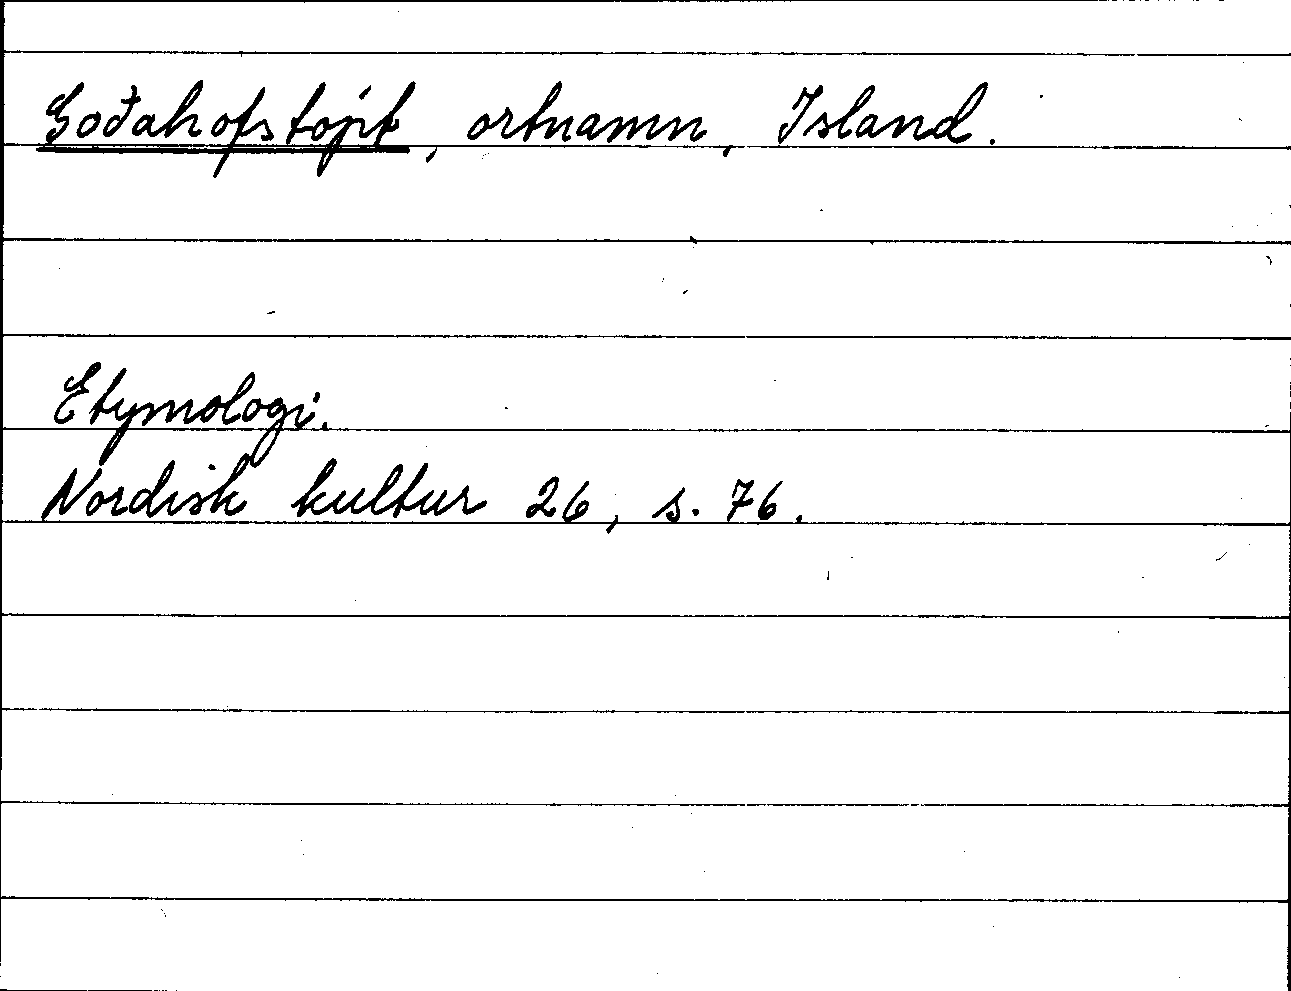 Goðahofstópt, ortnamn, Island.
Etymologi.
Nordisk kultur 26, s. 76.